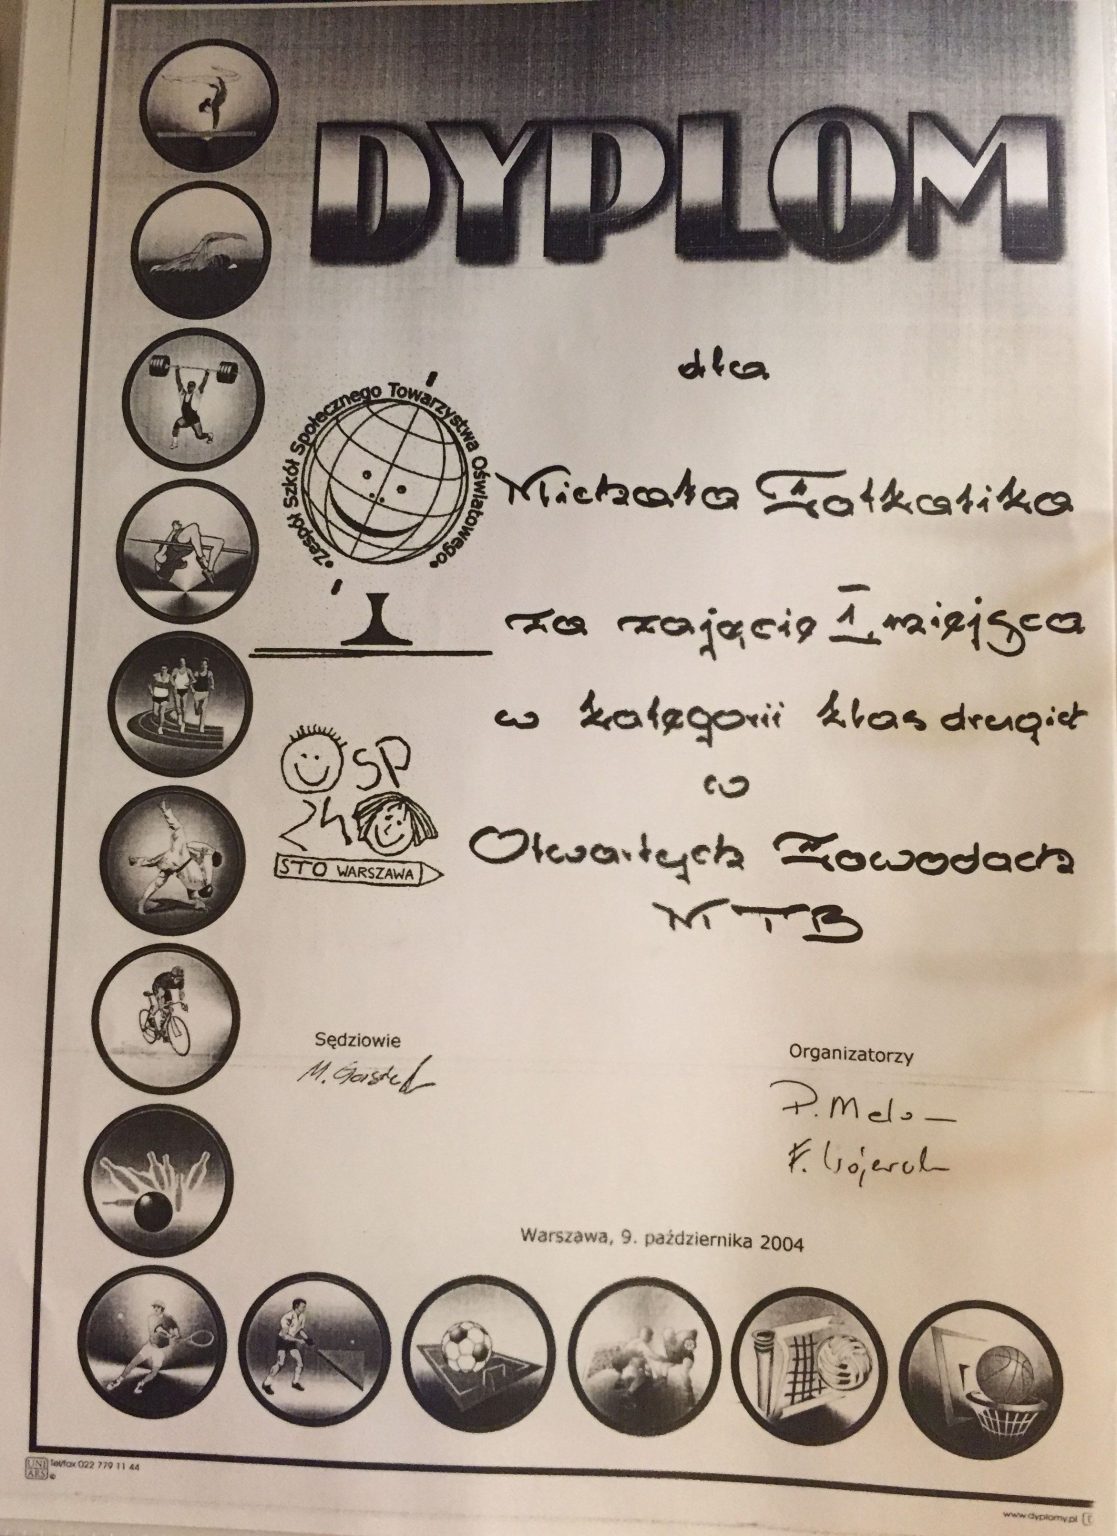 DYPLOM
dla
Zespół Szkół Społecznego Towarzystwa Oświatowego
Michała
za zajęcie I miejsca
w kategorii klas drugich
w
Otwartych Zawodach
MTB
SP
24
STO WARSZAWA
Sędziowie
M.
Organizatorzy
P.
Warszawa, 9. października 2004
UNI
ARS
Tel/fax 022 779 11 44
www.dyplomy.pl